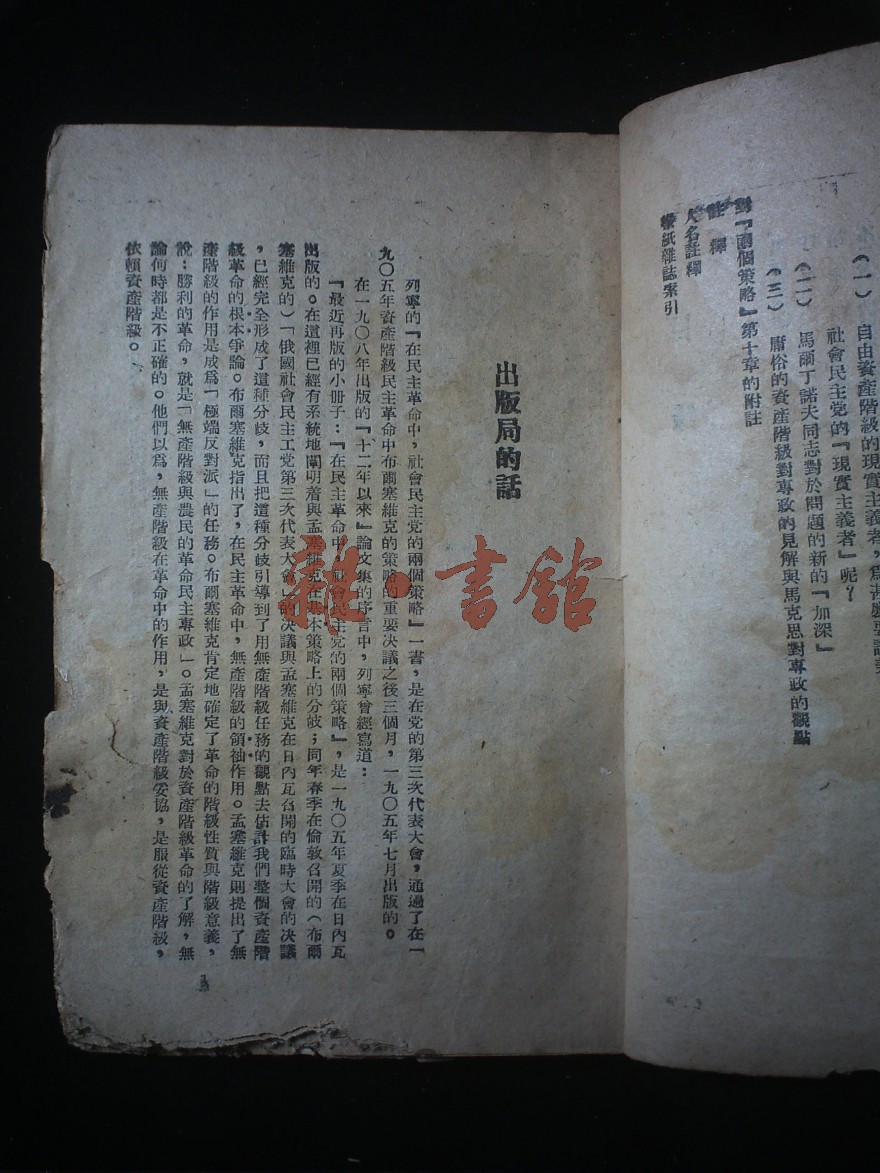 自由資產階級的現實主義者，爲甚麽要
（一）
社會民主党的『現實主義者』呢？
（二）　馬爾丁諾夫同志對於問題的新的『加深』
（三）　庸俗的資產階級對專政的見解與馬克思對專政的觀點
對『兩個策略』第十章的附註
註　釋
人名註釋
報紙雜誌索引
出版局的話
列寧的『在民主革命中，社會民主党的兩個策略』一書，是在党的第三次代表大會，通過了在一
九〇五年資產階級民主革命中布爾塞維克的策略的重要决議之後三個月，一九〇五年七月出版的。
在一九〇八年出版的『十二年以來』論文集的序言中，列寧曾經寫道：
『最近再版的小册子：『在民主革命中，社會民主党的兩個策略』，是一九〇五年夏季在日內瓦
出版的。在這裡已經有系統地闡明着與孟塞維克在基本策略上的分歧；同年春季在倫敦召開的（布爾
塞維克的）「俄國社會民主工党第三次代表大會」的决議與孟塞維克在日內瓦召開的臨時大會的决議
，已經完全形成了這種分歧，而且把這種分歧引導到了用無產階級任務的觀點去估計我們整個資產階
級革命的根本爭論。布爾塞維克指出了，在民主革命中，無產階級的領袖作用。孟塞維克則提出了無
產階級的作用是成爲「極端反對派」的任務。布爾塞維克肯定地確定了革命的階級性質與階級意義，
說：勝利的革命，就是「無產階級與農民的革命民主專政」。孟塞維克對於資產階級革命的了解，無
論何時都是不正確的。他們以爲，無產階級在革命中的作用，是與資產階級妥協，是服從資產階級，
依賴資產階級。
1
雜·書館